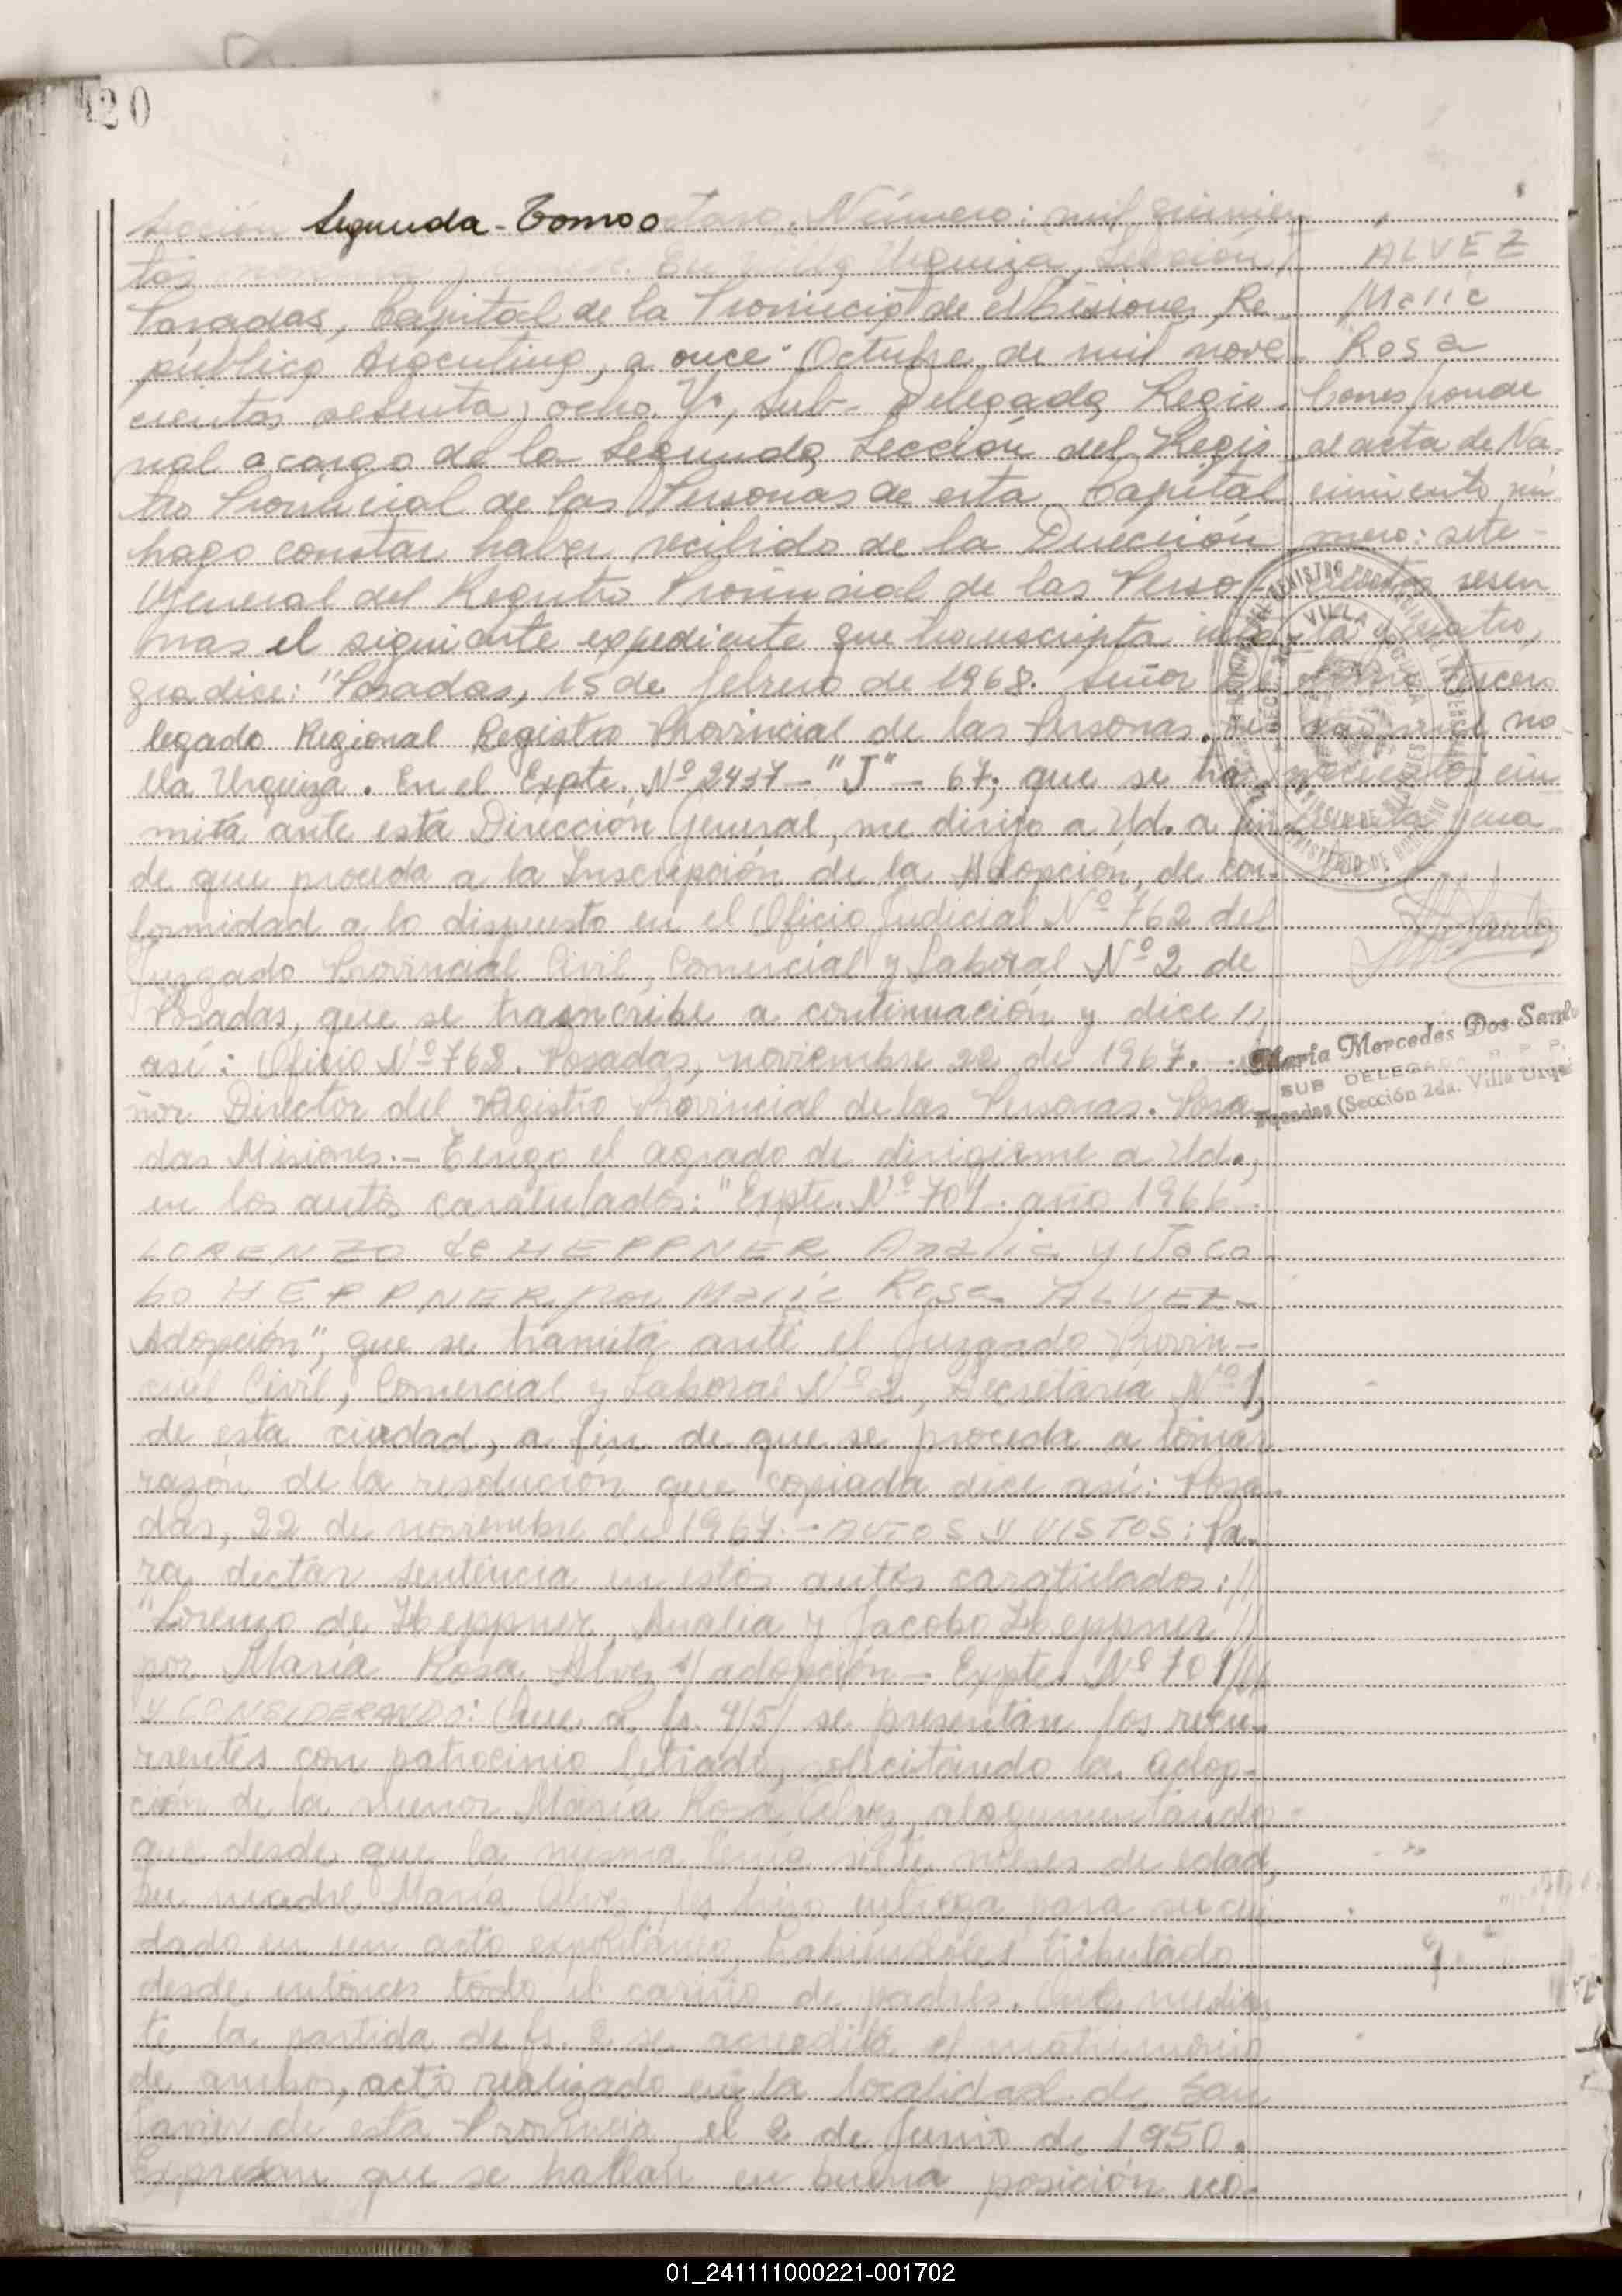 120
Sección Segunda - Tomo octavo. Número: mil quinien
tos En Villa Urquiza, Sección
Posadas, Capital de la Provincia de Misiones, Re
pública Argentina, a once Octubre de mil nove
cientos sesenta y ocho. Yo, Sub-Delegada Regio
nal a cargo de la Segunda Sección del Regis
tro Provincial de las Personas de esta Capital
hago constar haber recibido de la Dirección
General del Registro Provincial de las Perso
nas el siguiente expediente que transcripta inte
gra dice: "Posadas, 15 de febrero de 1968. Señor De
legado Regional Registro Provincial de las Personas. Vi
lla Urquiza. En el Expte. Nº 2437-"J"-67; que se tra
mita ante esta Dirección General, me dirijo a Ud. a fin
de que proceda a la Inscripción de la Adopción, de con-
formidad a lo dispuesto en el Oficio Judicial Nº 762 del
Juzgado Provincial Civil, Comercial y Laboral Nº 2 de
Posadas, que se trasncribe a continuación y dice //
así: Oficio Nº 762. Posadas, noviembre 22 de 1967.- Se
ñor Director del Registro Provincial de las Personas. Posa
das Misiones.- Tengo el agrado de dirigirme a Ud.,
en los autos caratulados: "Expte. Nº 701. año 1966-
LORENZO de HEPPNER Analia y Jaco
bo HEPPNER por María Rosa ALVEZ-
Adopción", que se tramita ante el Juzgado Provin-
cial Civil, Comercial y Laboral Nº 2, Secretaría Nº 1,
de esta ciudad, a fin de que se proceda a tomar
razón de la resolución que copiada dice así: Posa
das, 22 de noviembre de 1967.- AUTOS Y VISTOS: Pa-
ra dictar sentencia en estos autos caratulados: //
"Lorenzo de Heppner, Analia y Jacobo Heppner //
por María Rosa Alvez s/ adopción - Expte. Nº 701 //
Y CONSIDERANDO: Que a fs. 4/5/ se presentan los recu-
rrentes con patrocinio letrado, solicitando la adop-
ción de la menor María Rosa Alvez, alogumentando
que desde que la misma tenía siete meses de edad,
su madre María Alvez, les hizo entrega para su cui
dado en un acto expontáneo, habiéndole tributado
desde entonces todo el cariño de padres. Que median
te la partida de fs. 2 se acredita el matrimonio
de ambos, acto realizado en la localidad de San
Javier de esta Provincia, el 2 de Junio de 1950.
Expresan que se hallan en buena posición eco-
ALVEZ
María
Rosa
Corresponde
al acta de Na-
cimiento nú
mero: sete-
cientos sesen
ta y cuatro,
tomo tercero
mil no-
vecientos cin
cuenta y cua
tro.
REGISTRO PROVINCIAL DE LAS PERSONAS
VILLA URQUIZA
PROVINCIA DE MISIONES
MINISTERIO DE GOBIERNO
María Mercedes Dos Santos
SUB DELEGADA R. P. P.
Posadas (Sección 2da. Villa Urquiza)
01_241111000221-001702